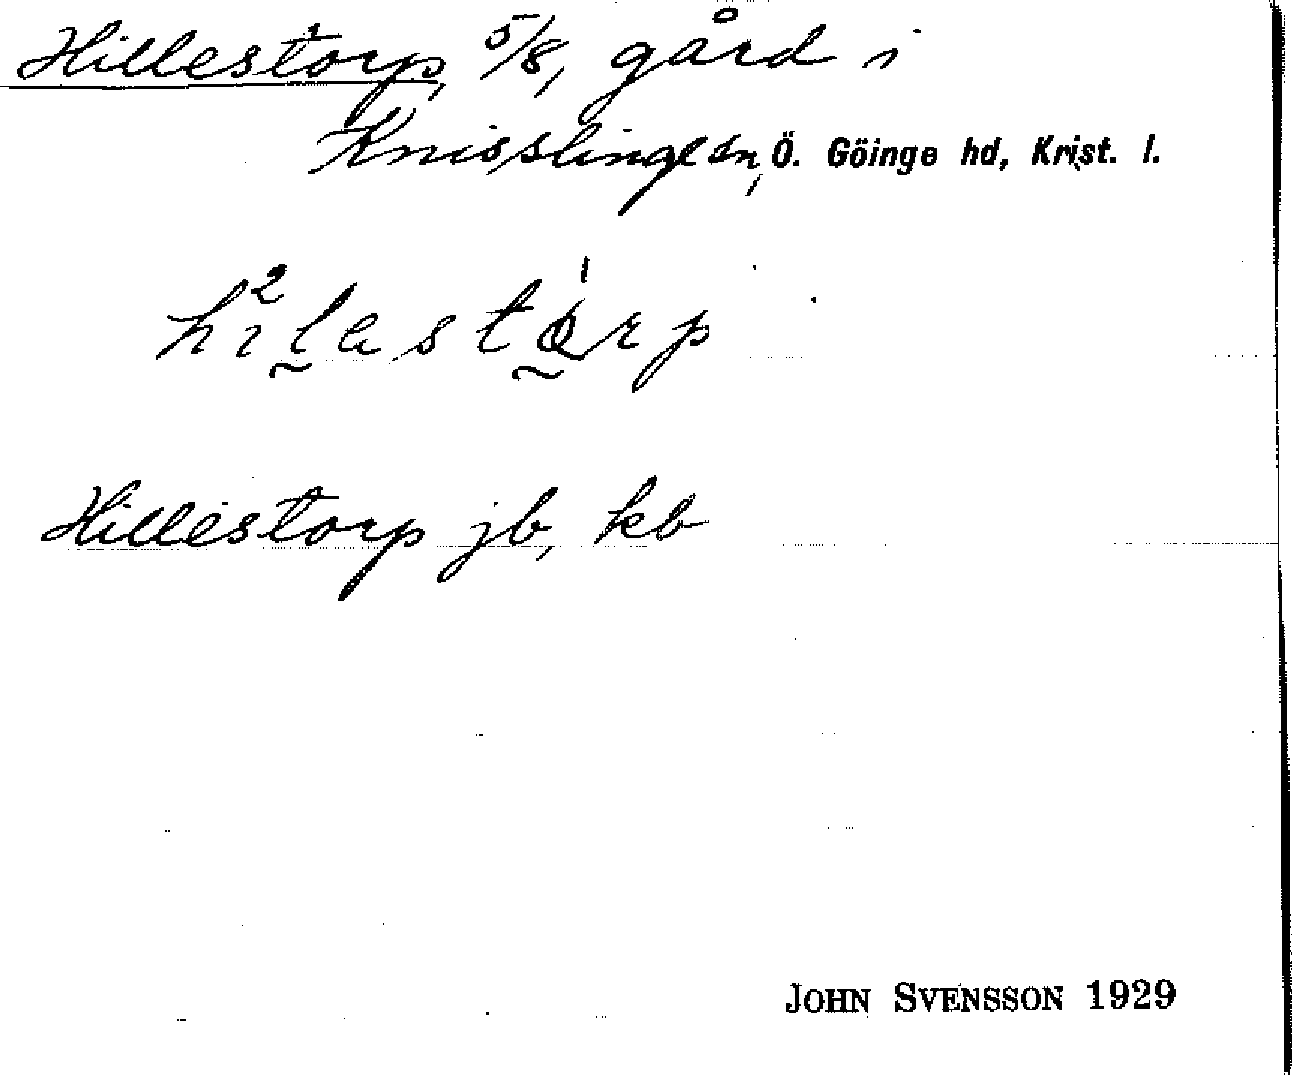 Hillestorp, 5/8, gård i
Knisslinge sn, Ö. Göinge hd, Krist. l.
Hillestorp jb, kb
JOHN SVENSSON 1929